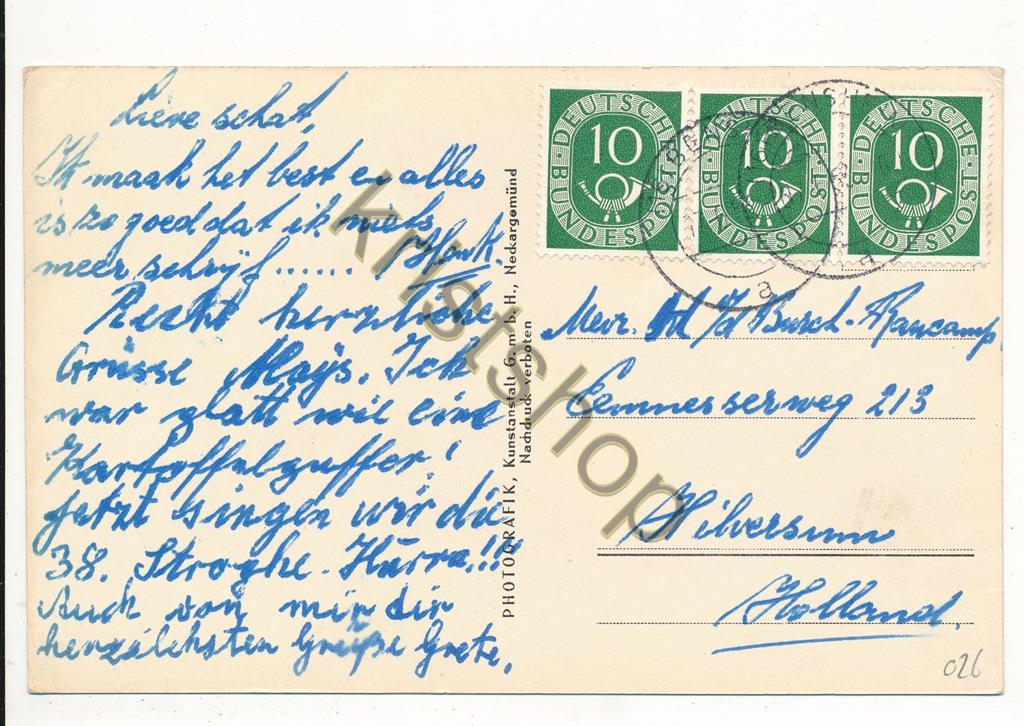 Lieve schat,
It maak het best en alles
is zo goed dat ik niets
meer schrijf ...... Henk.
Recht herzliche
Grüsse Aloÿs. Ich
war platt wie eine
Kartoffelpuffer!
Jetzt singen wir die
38. Strophe. Hurra!!!
Auch von mir dir
herzlichsten Grüsse Grete.
PHOTOGRAFIK, Kunstanstalt G. m. b. H., Neckargemünd
Nachdruck verboten
DEUTSCHE BUNDESPOST 10
DEUTSCHE BUNDESPOST 10
DEUTSCHE BUNDESPOST 10
a
a
Mevr. v/d Busch-Raucamp
Eemnesserweg 213
Hilversum
Holland.
026
kristshop